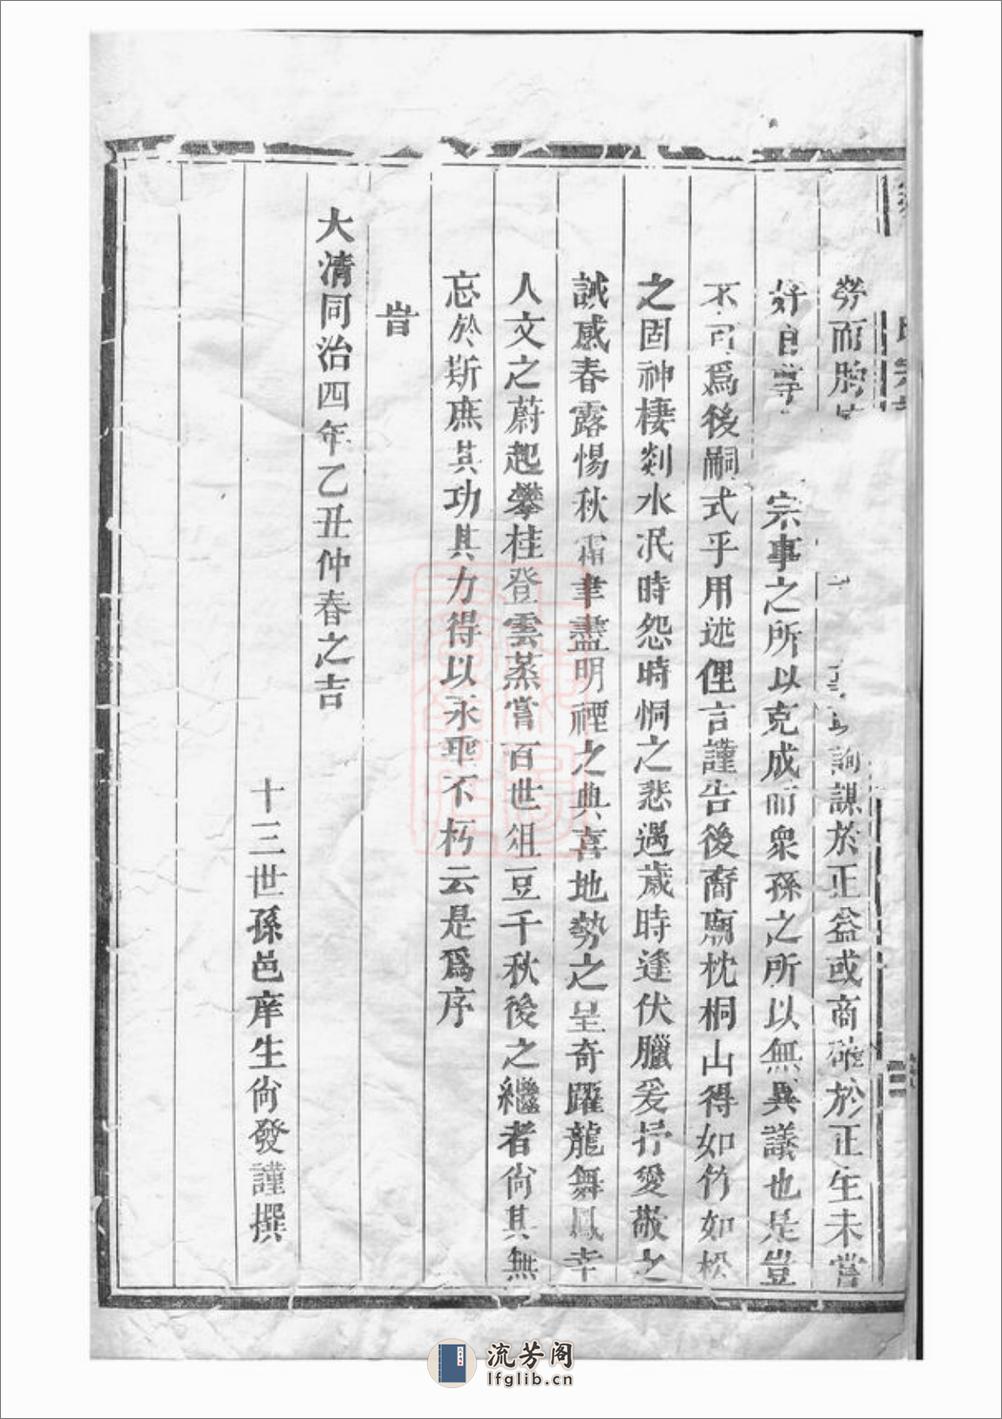 勞而
詢謀於正益或商確於正生未嘗
好自專
宗事之所以克成而衆孫之所以無異議也是豈
不可爲後嗣式乎用述俚言謹告後裔廟枕桐山得如竹如松
之固神棲剡水泯時怨時恫之悲遇歲時逢伏臘爰抒愛敬之
誠感春露惕秋霜聿盡明禋之典喜地勢之呈奇躍龍舞鳳幸
人文之蔚起攀桂登雲蒸嘗百世俎豆千秋後之繼者尙其無
忘於斯庶其功其力得以永垂不朽云是爲序
旹
大清同治四年乙丑仲春之吉
十三世孫邑庠生尙發謹撰
流芳阁
lfglib.cn